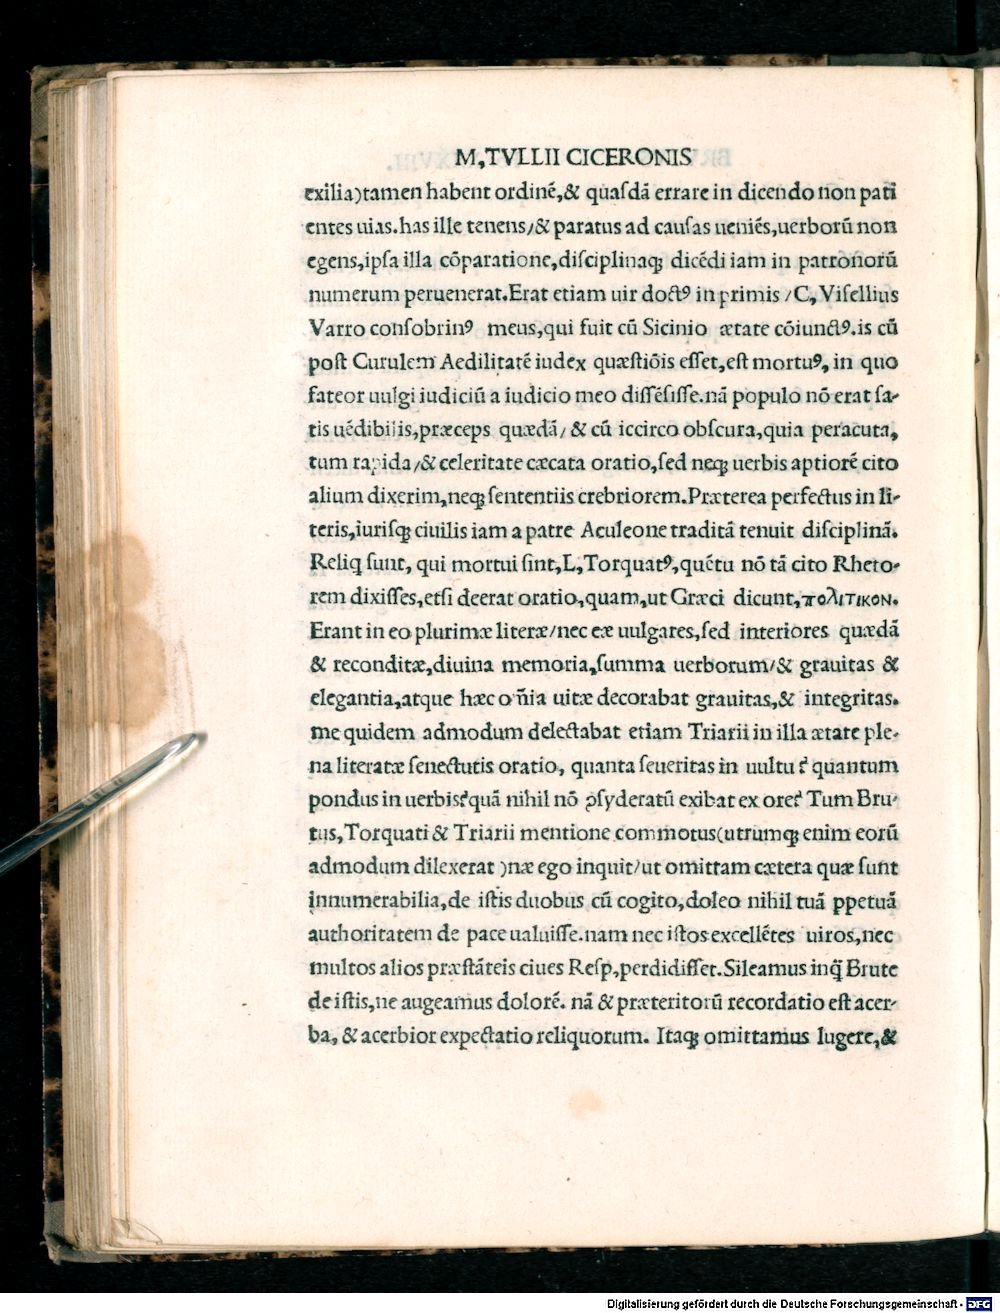 M,TVLLII CICERONIS
exilia)tamen habent ordinē,& quaſdā errare in dicendo non pati
entes uias.has ille tenens/& paratus ad cauſas ueniēs,uerborū non
egens,ipſa illa cōparatione,diſciplinaq; dicēdi iam in patronorū
numerum peruenerat.Erat etiam uir doctꝰ in primis /C, Viſellius
Varro conſobrinꝰ meus,qui fuit cū Sicinio ætate cōiunctꝰ.is cū
poſt Curulem Aedilitatē iudex quæſtiōis eſſet,eſt mortuꝰ, in quo
fateor uulgi iudiciū a iudicio meo diſſēſiſſe.nā populo nō erat ſa-
tis uēdibilis,præceps quædā/ & cū iccirco obſcura,quia peracuta,
tum rapida/& celeritate cæcata oratio,ſed neq; uerbis aptiorē cito
alium dixerim,neq; ſententiis crebriorem.Præterea perfectus in li-
teris,iuriſq; ciuilis iam a patre Aculeone traditā tenuit diſciplinā.
Reliq ſunt, qui mortui ſint,L,Torquatꝰ,quētu nō tā cito Rheto-
rem dixiſſes,etſi deerat oratio,quam,ut Græci dicunt,πολιτικον.
Erant in eo plurimæ literæ/nec eæ uulgares,ſed interiores quædā
& reconditæ,diuina memoria,ſumma uerborum/& grauitas &
elegantia,atque hæc oñia uitæ decorabat grauitas,& integritas.
me quidem admodum delectabat etiam Triarii in illa ætate ple-
na literatæ ſenectutis oratio, quanta ſeueritas in uultu? quantum
pondus in uerbis?quā nihil nō ꝯſyderatū exibat ex ore? Tum Bru-
tus,Torquati & Triarii mentione commotus(utrumq; enim eorū
admodum dilexerat )næ ego inquit/ut omittam cætera quæ ſunt
innumerabilia,de iſtis duobus cū cogito,doleo nihil tuā ppetuā
authoritatem de pace ualuiſſe.nam nec iſtos excellētes uiros,nec
multos alios præſtāteis ciues Reſp,perdidiſſet.Sileamus inq̄ Brute
de iſtis,ne augeamus dolorē. nā & præteritorū recordatio eſt acer-
ba, & acerbior expectatio reliquorum. Itaq; omittamus lugere,&
Digitalisierung gefördert durch die Deutsche Forschungsgemeinschaft - DFG